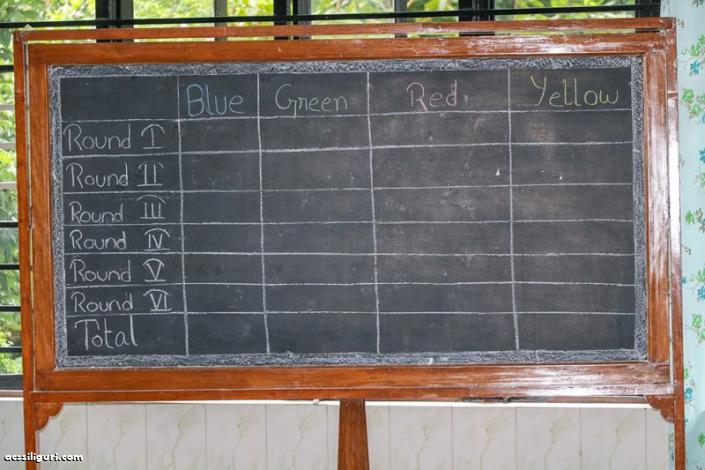 Blue Green Red Yellow
Round I
Round II
Round III
Round IV
Round V
Round VI
Total
acssiliguri.com